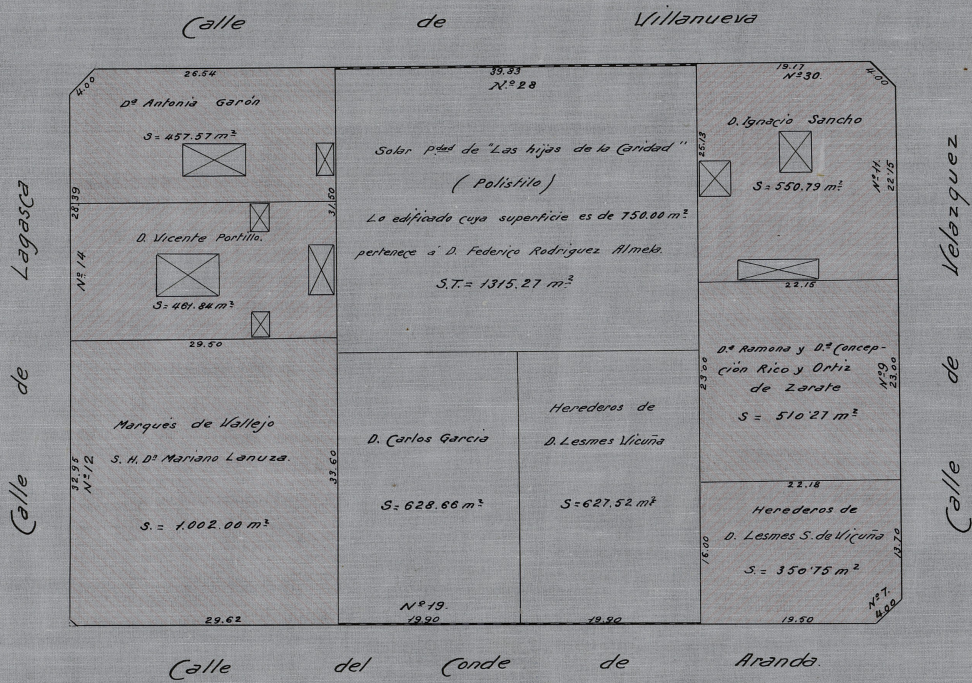 Calle de Villanueva
Calle de Lagasca
Calle de Velazquez
Calle del Conde de Aranda.
4.00
26.54
Dª Antonia Garón
S= 457.57 m²
28,39
31.50
D. Vicente Portillo.
Nº 14
S= 461.84 m²
29.50
Marqués de Vallejo
S. H. Dª Mariano Lanuza.
32.95
Nº 12
33.60
S. = 1.002.00 m²
29.62
39.83
N.º 28
Solar Pdad de "Las hijas de la Caridad"
(Polístilo)
Lo edificado cuya superficie es de 750.00 m²
pertenece á D. Federico Rodriguez Almela.
S.T. = 1315.27 m²
D. Carlos Garcia
S= 628.66 m²
Nº 19.
19.90
Herederos de
D. Lesmes Vicuña
S= 627.52 m²
19.90
19.17
Nº 30.
4.00
D. Ignacio Sancho
25.13
S= 550.79 m²
Nº 11.
22'15
22.15
D.ª Ramona y D.ª Concep-
ción Rico y Ortiz
de Zarate
23'00
Nº 9
23.00
S = 510'27 m²
22.18
Herederos de
D. Lesmes S. de Vicuña
16.00
13.70
S. = 350'75 m²
Nº 7.
4.00
19.50